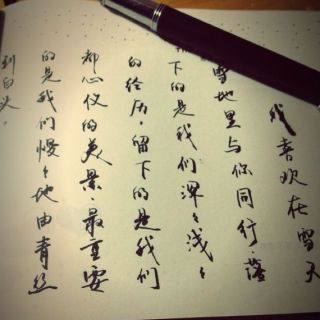 我喜欢在雪天
雪地里与你同行
下的是我们深々浅々
的经历，留下的是我们
都心仪的美景，最重要
的是我们慢々地由青丝
到白头，